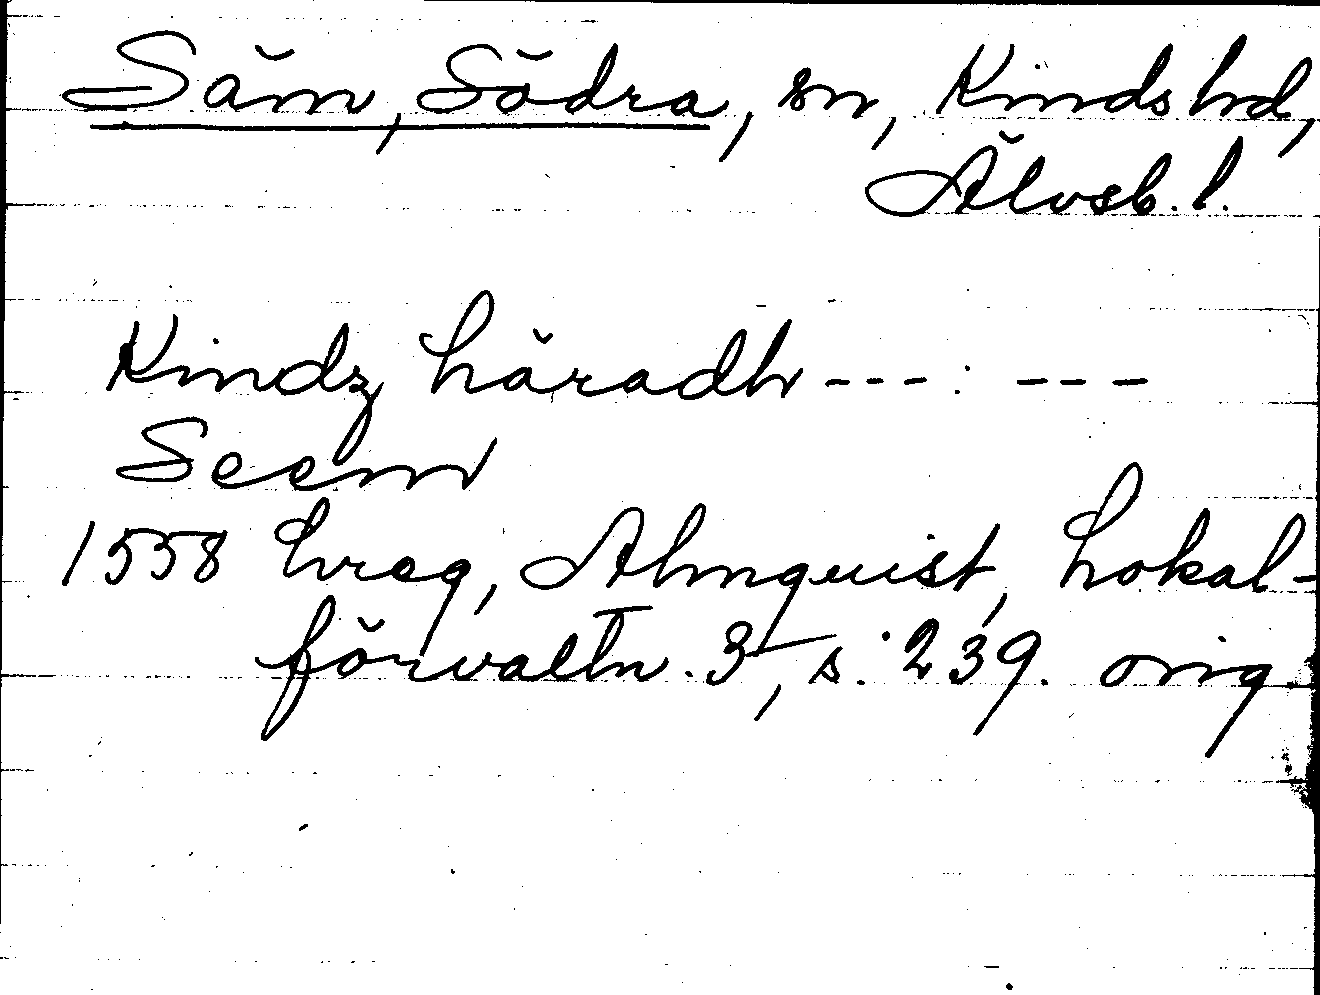 Säm, Södra, sn, Kinds hd,
Älvsb. l.
Kindz häradh --- : ---
Seem
1558 hreg, Almquist, Lokal-
förvaltn. 3, s. 239. orig